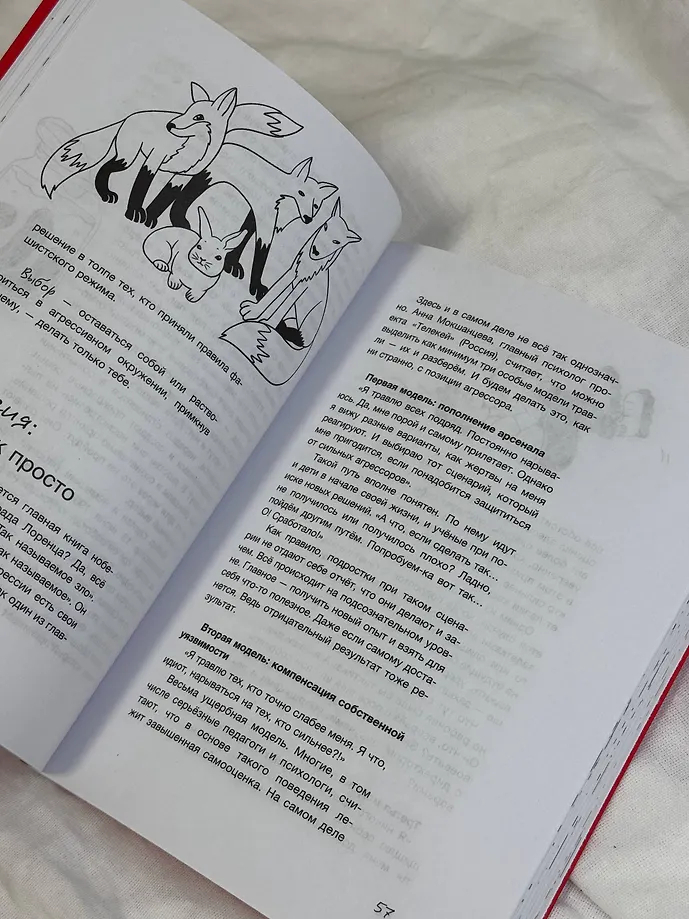 решение в толпе тех, кто приняли правила фа-
шистского режима.
Выбор — оставаться собой или раство-
риться в агрессивном окружении, примкнув
нему, — делать только тебе.
просто
ется главная книга нобе-
рада Лоренца? Да, всё
Так называемое зло».
ак называемое». Он
рессии есть свои
к один из глав-
Здесь и в самом деле не всё так однознач-
но. Анна Мокшанцева, главный психолог про-
екта «Телекей» (Россия), считает, что можно
выделить как минимум три особые модели трав-
ли — их и разберём. И будем делать это, как
ни странно, с позиции агрессора.
Первая модель: пополнение арсенала
«Я травлю всех подряд. Постоянно нарыва-
юсь. Да, мне порой и самому прилетает. Однако
я вижу разные варианты, как жертвы на меня
реагируют. И выбираю тот сценарий, который
мне пригодится, если понадобится защититься
от сильных агрессоров».
Такой путь вполне понятен. По нему идут
и дети в начале своей жизни, и учёные при по-
иске новых решений. «А что, если сделать так…
не получилось или получилось плохо? Ладно,
пойдём другим путём. Попробуем-ка вот так…
О! Сработало!»
Как правило, подростки при таком сцена-
рии не отдают себе отчёт, что они делают и за-
чем. Всё происходит на подсознательном уров-
не. Главное — получить новый опыт и взять для
себя что-то полезное. Даже если самому доста-
нется. Ведь отрицательный результат тоже ре-
зультат.
Вторая модель: компенсация собственной
уязвимости
«Я травлю тех, кто точно слабее меня. Я что,
идиот, нарываться на тех, кто сильнее?!»
Весьма ущербная модель. Многие, в том
числе серьёзные педагоги и психологи, счи-
тают, что в основе такого поведения ле-
жит завышенная самооценка. На самом деле
57